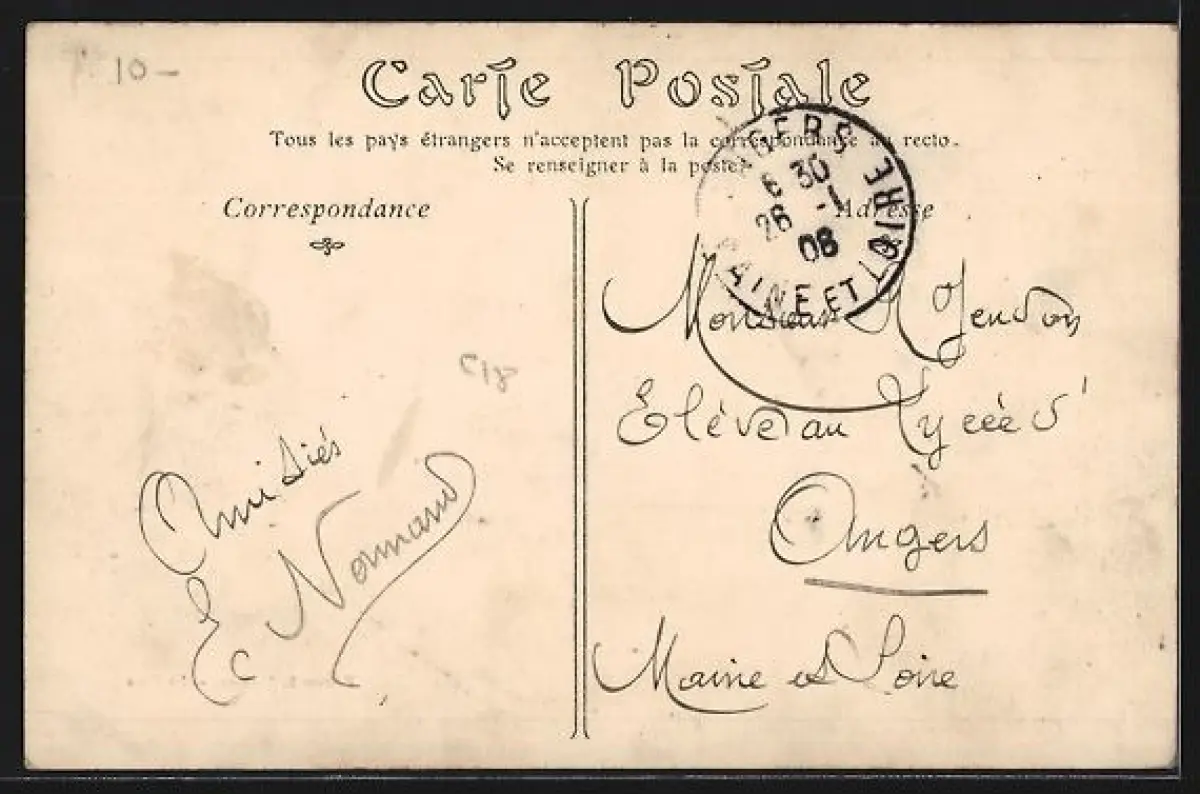 10 –
Carte Postale
Tous les pays étrangers n'acceptent pas la correspondance au recto.
Se renseigner à la poste.
Correspondance
Adresse
ANGERS
8 30
26 -1
08
MAINE ET LOIRE
Monsieur
Elève au Lycée d'
Angers
Maine et Loire
Amitiés
E Normand